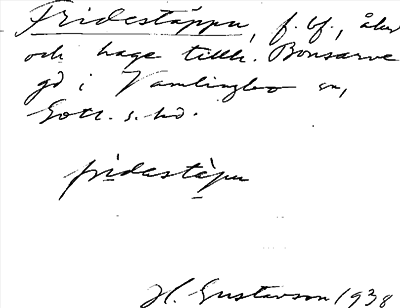 Fridestäppu, f. lf., åker
och hage tillh. Bonsarve
gd i Vamlingbo sn,
Gotl. s. hd.
fridestàpu
H. Gustavson 1938